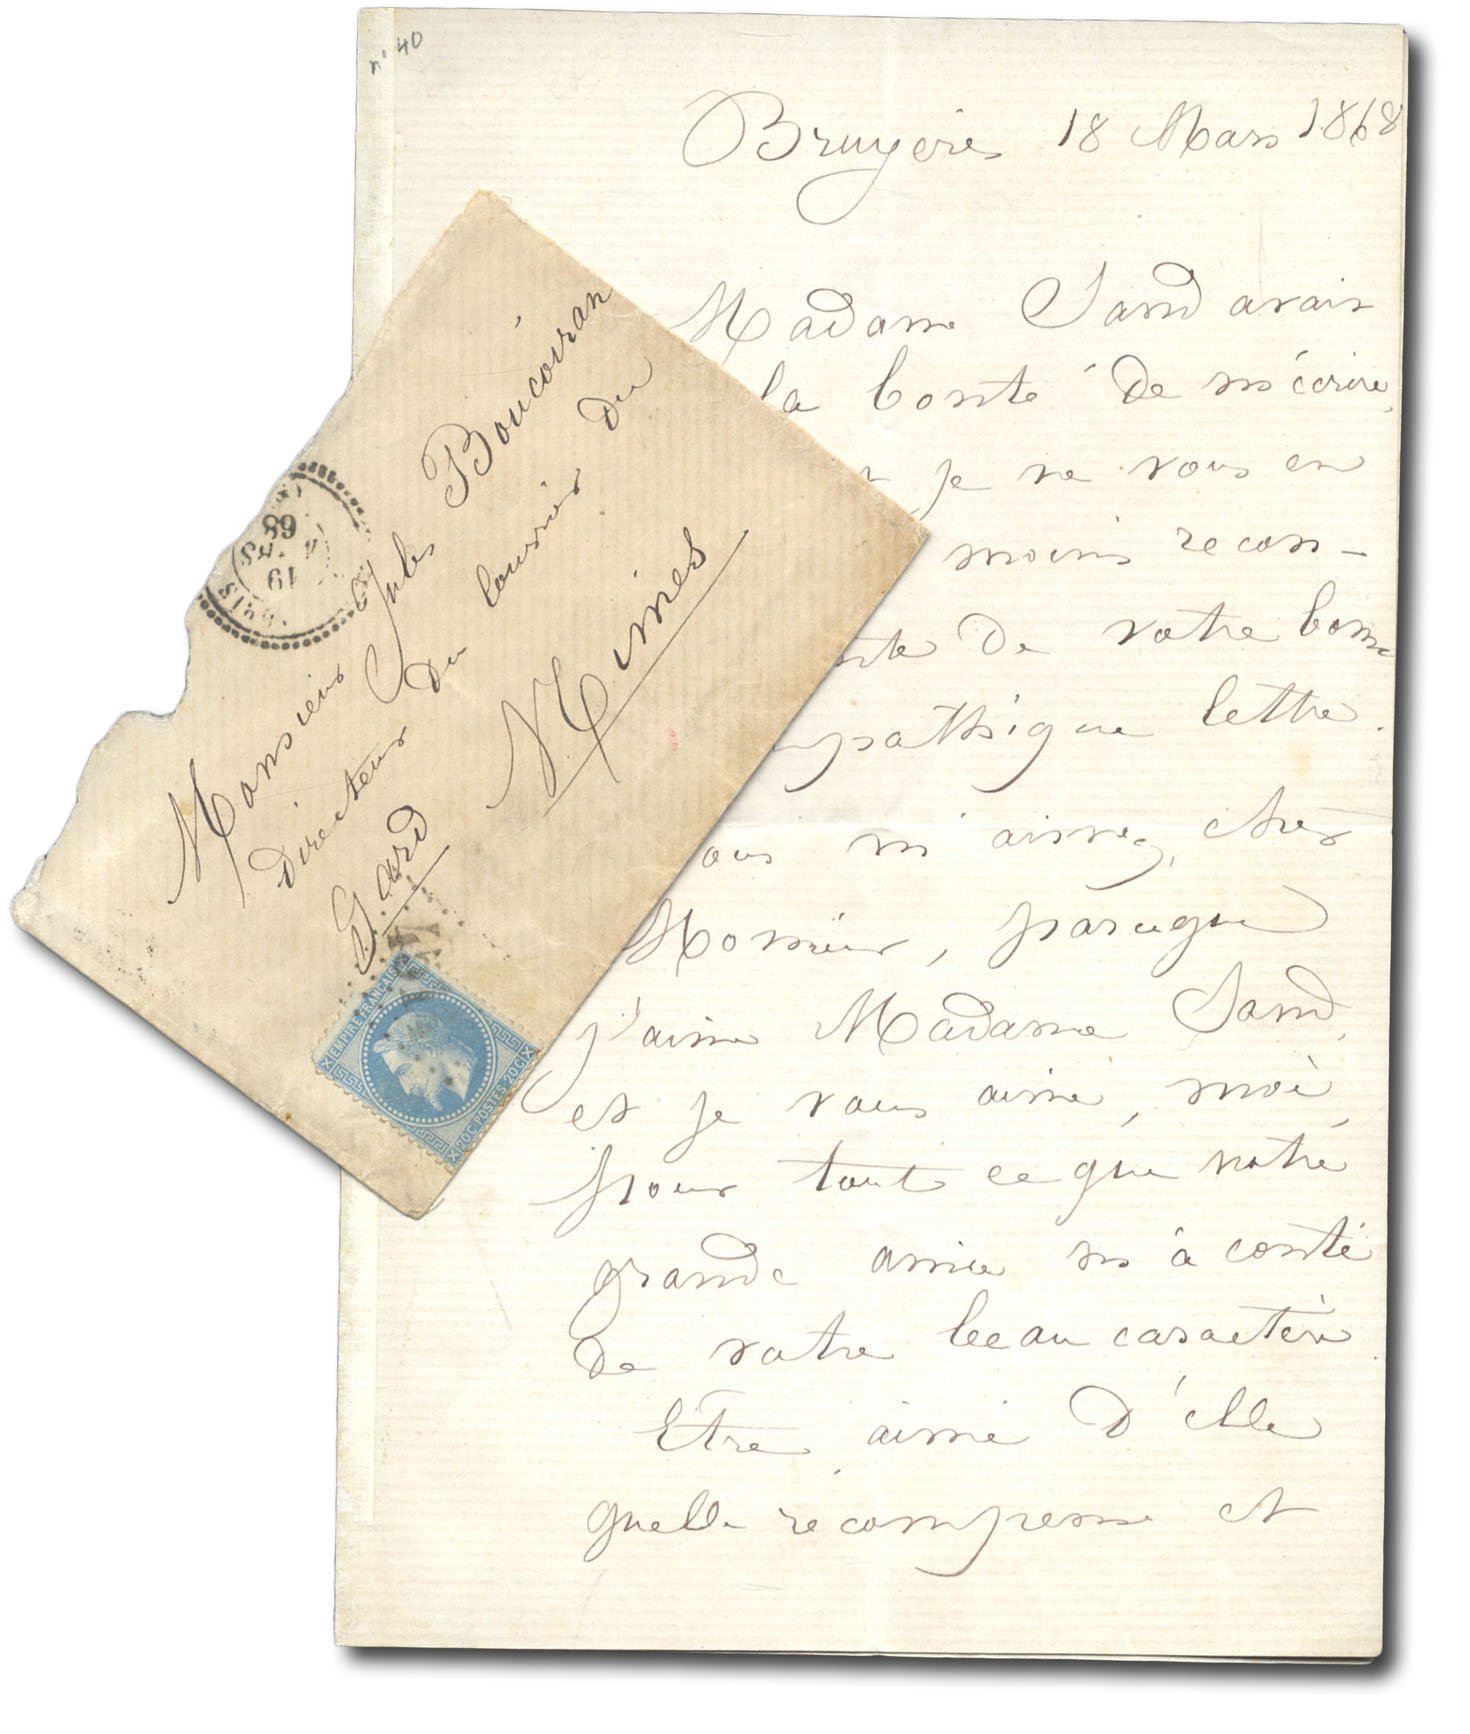 n° 40
Bruyères 18 Mars 1868
Madame Sand avait
la bonté de m'écrire,
je ne vous en
moins recon-
de votre bonne
mpathique lettre.
ous m'aimez, cher
Monsieur, parceque
j'aime Madame Sand,
et je vous aime, moi,
pour tout ce que votre
grande amie m'à conté
de votre beau caractère.
Etre aimé d'elle
quelle récompense et
Monsieur Jules Boucoiran
Directeur du Courrier du
Gard
Nimes
19
68
EMPIRE FRANÇAIS
20C POSTES 20C